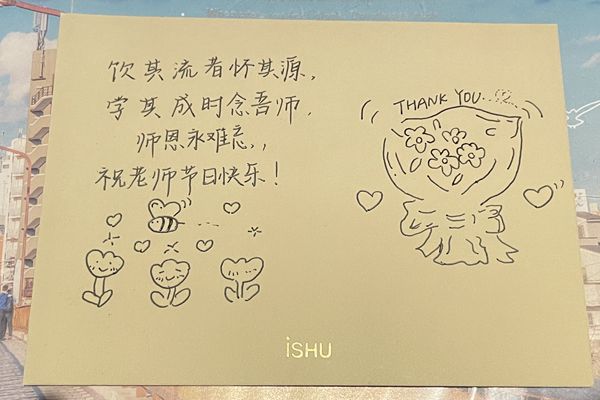 饮其流者怀其源,
学其成时念吾师.
师恩永难忘,,
祝老师节日快乐!
THANK YOU...
iSHU